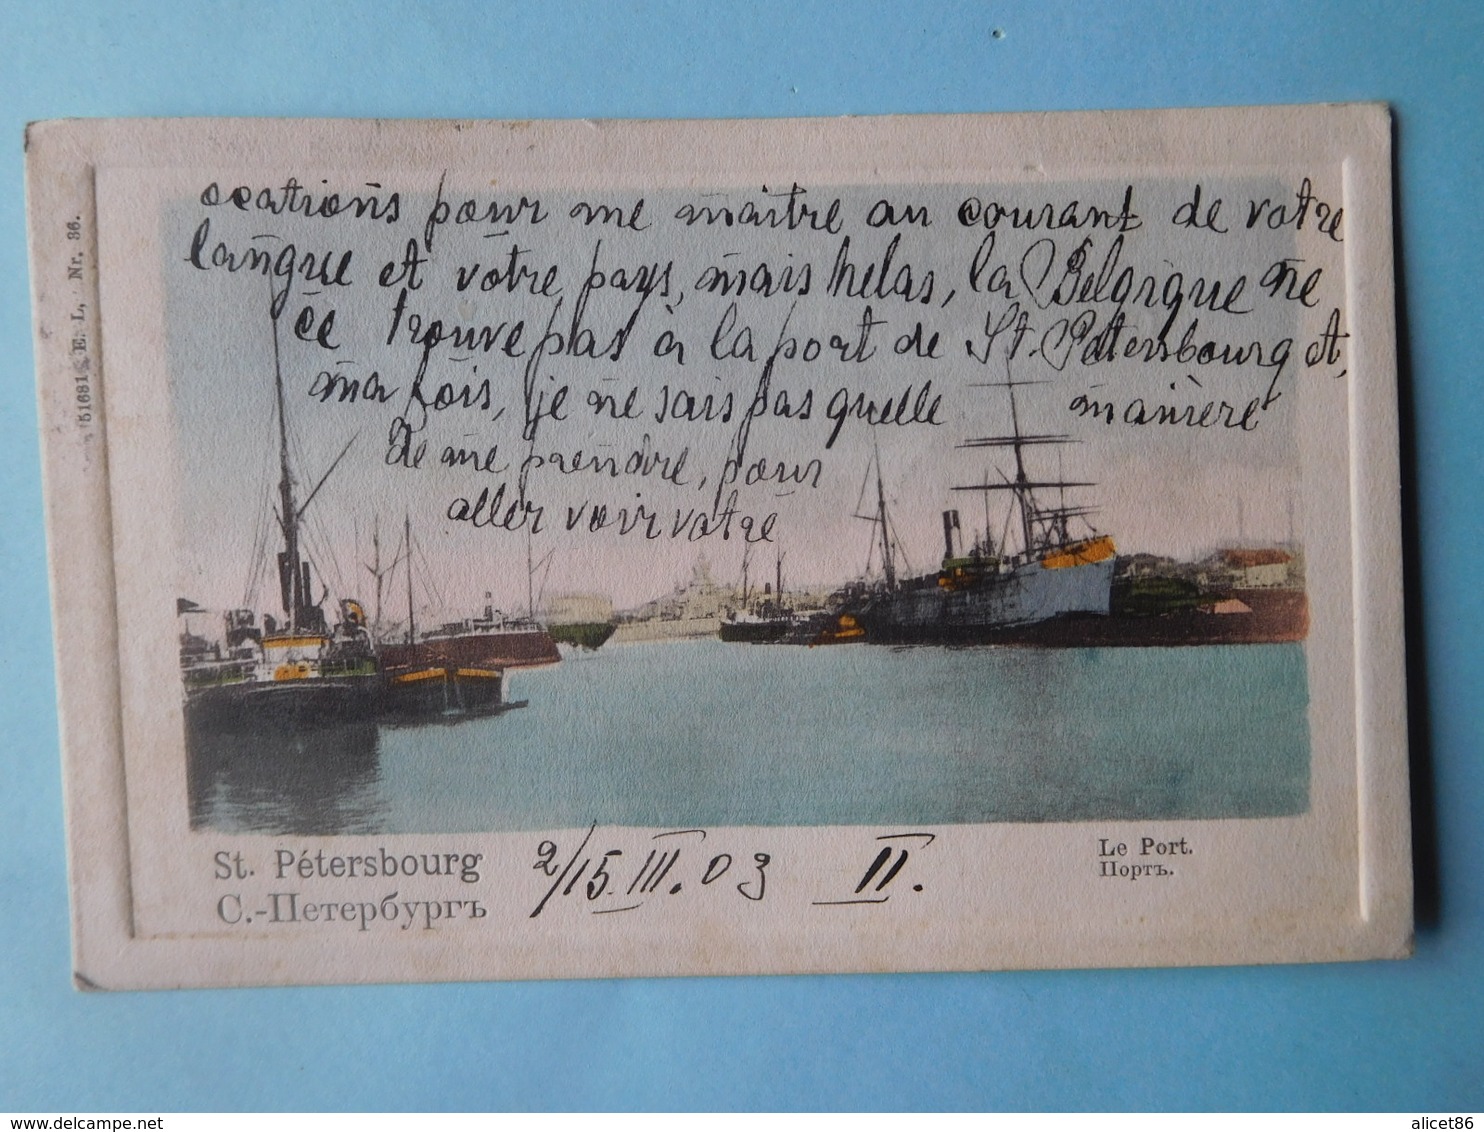 ocations pour me maitre au courant de votre
langue et votre pays, mais helas, la Belgique ne
ce trouve pas à la port de St. Petersbourg et,
ma fois, je ne sais pas quelle manière
de me prendre, pour
aller voir votre
St. Pétersbourg
С.-Петербургъ
2/15.III.03 II.
Le Port.
Портъ.
51681 E. L., Nr. 36.
alicet86
delcampe.net